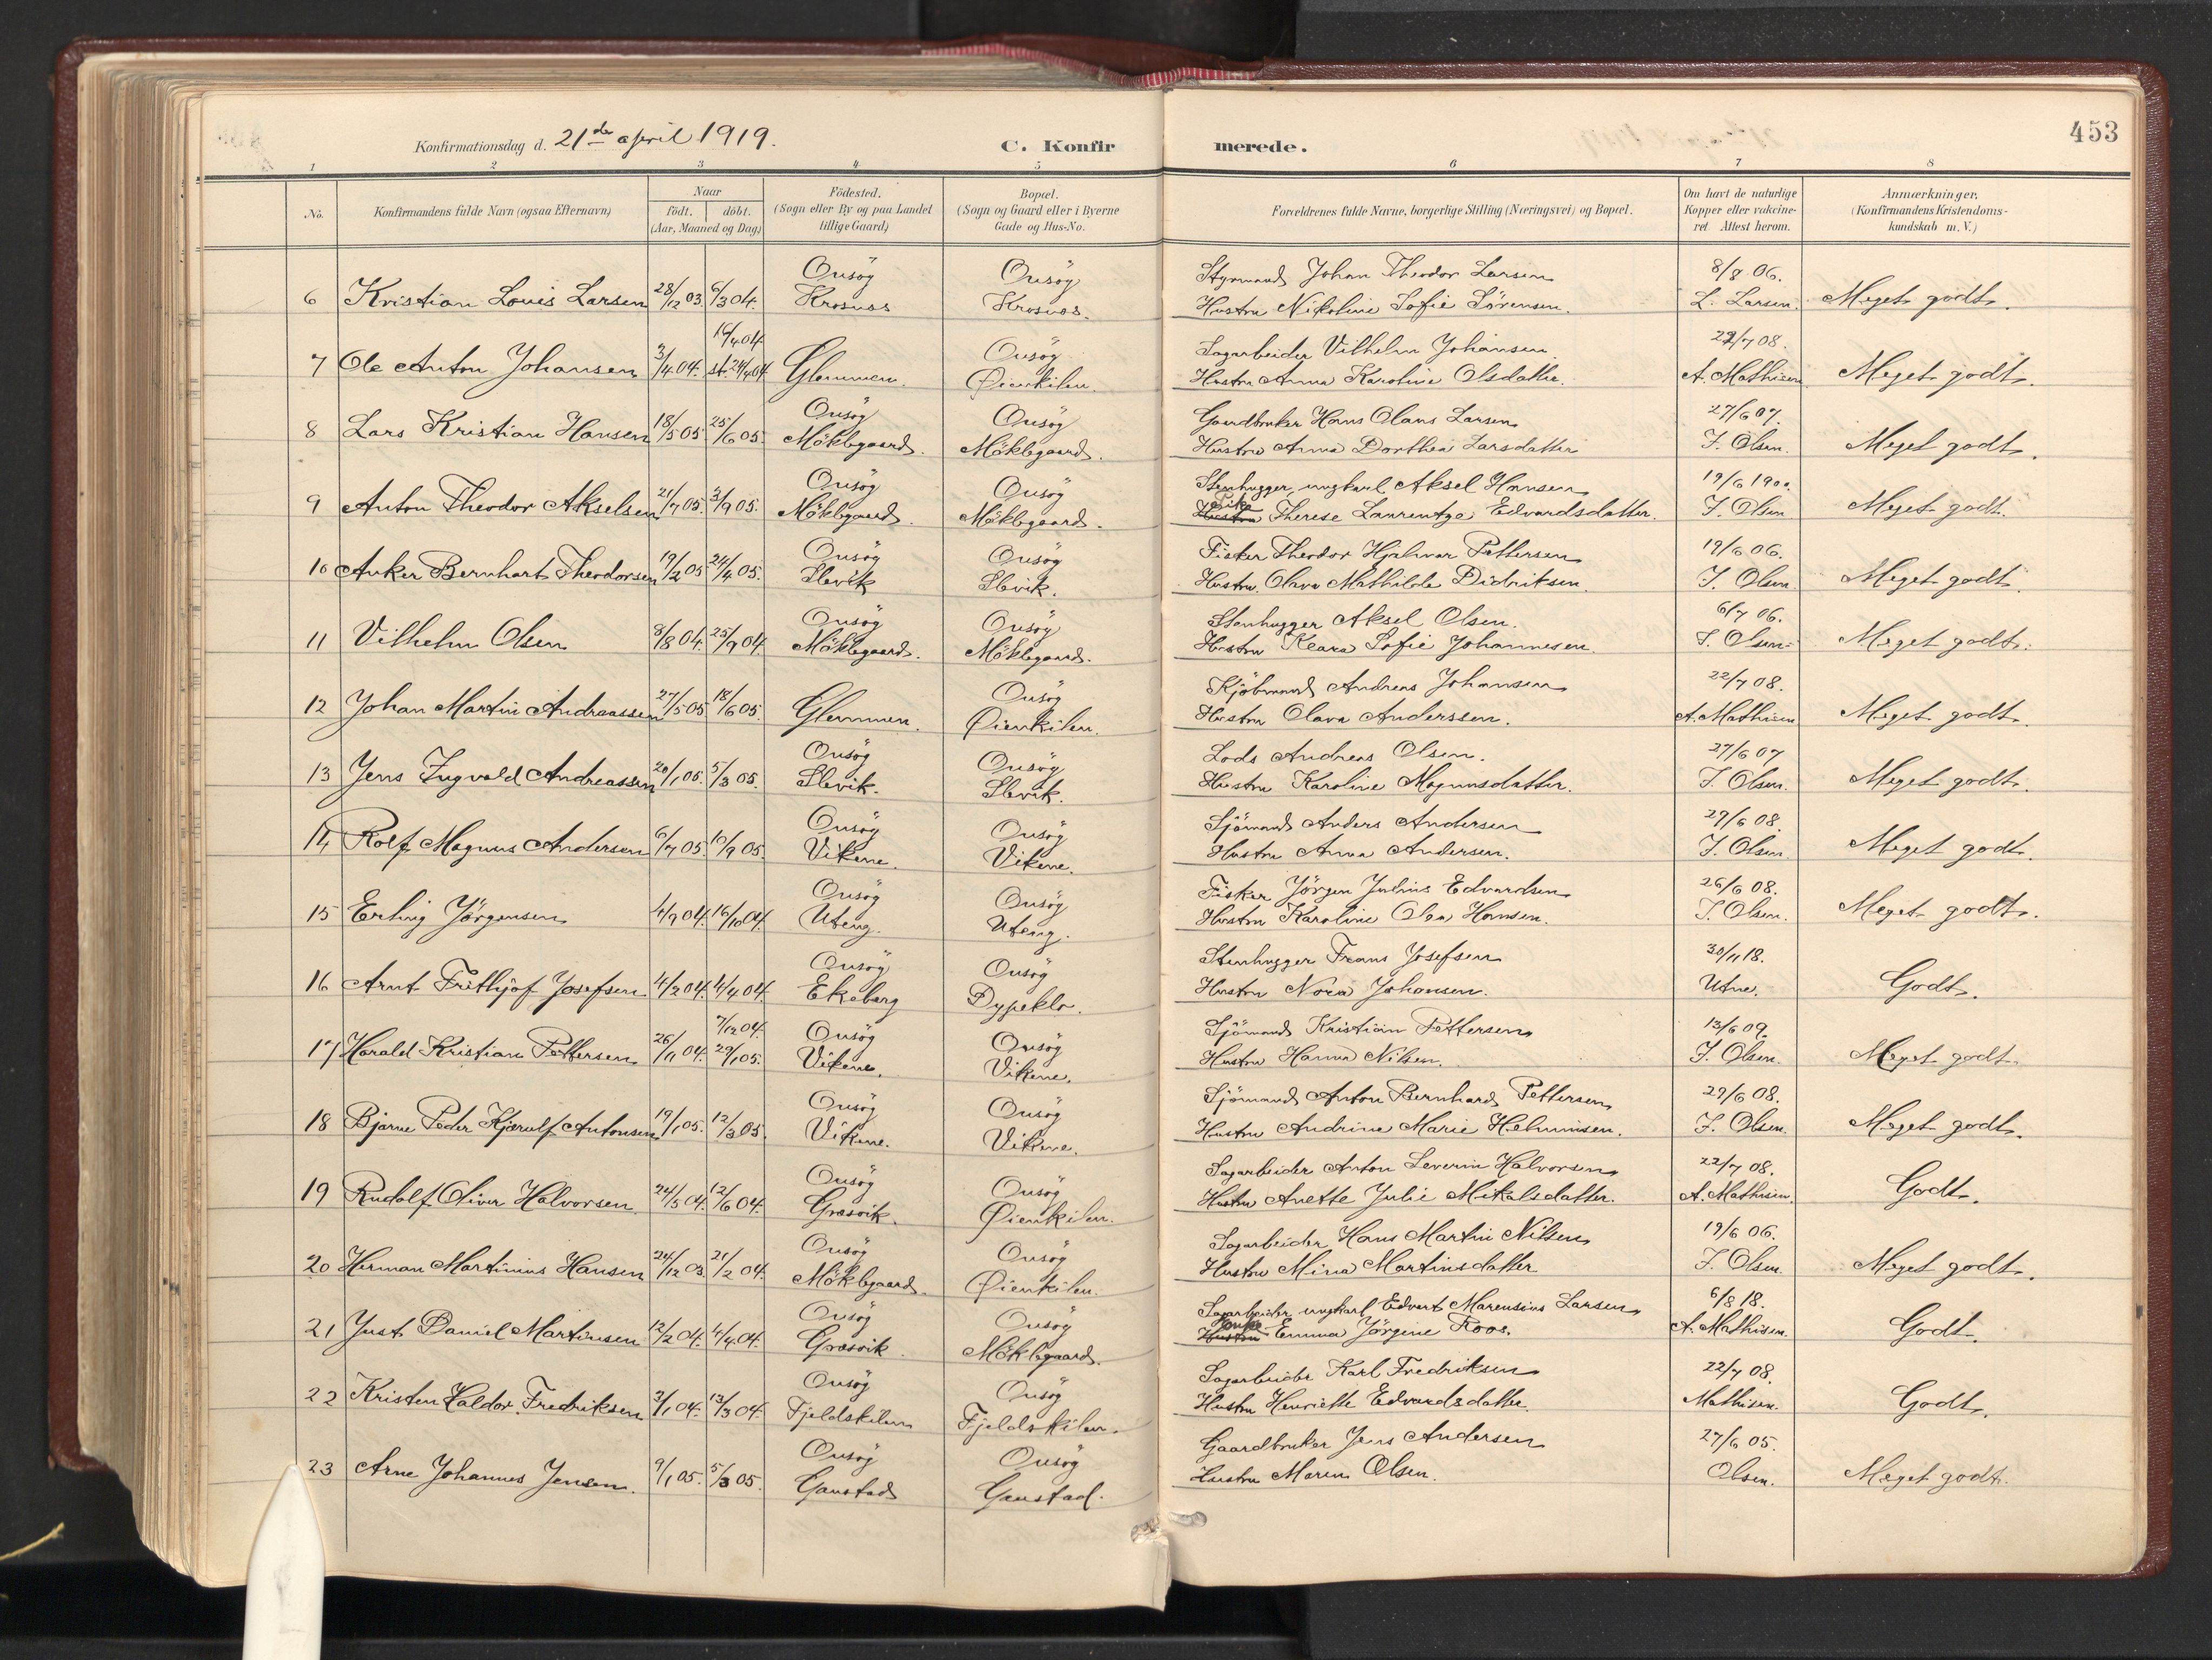 453
Konfirmationsdag d. 21de april 1919. C. Konfirmerede.
1 2 3 4 5 6 7 8
No. Konfirmandens fulde Navn (ogsaa Efternavn) Naar født. døbt. (Aar, Maaned og Dag) Fødested. (Sogn eller By og paa Landet tillige Gaard) Bopæl. (Sogn og Gaard eller i Byerne Gade og Hus-No. Forældrenes fulde Navne, borgerlige Stilling (Næringsvei) og Bopæl. Om havt de naturlige Kopper eller vakcineret. Attest herom. Anmærkninger. (Konfirmandens Kristendomskundskab m. V.)
Onsøy Onsøy Styrmand Johan Theodor Larsen 8/8 06.
6 Kristian Louis Larsen 28/12 03. 6/3 04. Krosnæs Krosnæs. Hustru Nikoline Sofie Sørensen. L. Larsen. Meget godt.
14/4 04 Onsøy Sagarbeider Vilhelm Johansen 22/7 08.
7 Ole Anton Johansen 3/4 04. st. 24/4 04 Glemmen. Øienkilen. Hustru Anna Karoline Olsdatter. A. Mathisen Meget godt.
Onsøy Onsøy Gaardbruker Hans Olaus Larsen 27/6 07.
8 Lars Kristian Hansen 18/5 05 25/6 05. Møklegaard. Møklegaard. Hustru Anna Dorthea Larsdatter J. Olsen. Meget godt.
Onsøy Onsøy Stenhugger, ungkarl Aksel Hansen 19/6 1900.
9 Anton Theodor Akselsen 21/7 05. 3/9 05. Møklegaard. Møklegaard. Hustru Pike Therese Laurentze Edvardsdatter. J. Olsen Meget godt.
Onsøy Onsøy Fisker Theodor Hjalmar Pettersen 19/6 06.
10 Anker Bernhart Theodorsen 19/2 05 24/4 05. Slevik Slevik. Hustru Olava Mathilde Didriksen. J. Olsen. Meget godt
Onsøy Onsøy Stenhugger Aksel Olsen. 6/7 06.
11 Vilhelm Olsen 8/8 04. 25/9 04. Møklegaard. Møklegaard. Hustru Klara Sofie Johannesen. J. Olsen. Meget godt.
Onsøy Kjøbmand Andreas Johansen 22/7 08.
12 Johan Martin Andreassen 27/5 05 18/6 05. Glemmen. Øienkilen. Hustru Olava Anderssen. A. Mathisen Meget godt.
Onsøy Onsøy Lods Andreas Olsen. 27/6 07
13 Jens Ingvald Andreassen 20/1 05. 5/3 05. Slevik. Slevik. Hustru Karoline Magnusdatter. J. Olsen. Meget godt.
Onsøy Onsøy Sjømand Anders Andersen 29/6 08.
14 Rolf Magnus Andersen 6/7 05. 10/9 05. Vikene. Vikene. Hustru Anna Andersen. J. Olsen Meget godt.
Onsøy Onsøy Fisker Jørgen Julius Edvardsen 26/6 08.
15 Erling Jørgensen 4/9 04. 16/10 04. Uteng. Uteng. Hustru Karoline Olea Hansen. J. Olsen. Meget godt.
Onsøy Onsøy Stenhugger Frans Josefsen 30/11 18.
16 Arnt Frithjof Josefsen 4/2 04. 4/4 04 Ekeberg Dypeklo. Hustru Nora Johansen. Utne. Godt.
7/12 04. Onsøy Onsøy Sjømand Kristian Pettersen 13/6 09.
17 Harald Kristian Pettersen 26/11 04. 29/1 05. Vikene. Vikene. Hustru Hanna Nilsen. J. Olsen. Meget godt
Onsøy Onsøy Sjømand Anton Bernhard Pettersen 29/6 08.
18 Bjarne Peder Kjærulf Antonsen 19/1 05. 12/3 05. Vikene. Vikene. Hustru Andrine Marie Helminsen. J. Olsen. Meget godt.
Onsøy Onsøy Sagarbeider Anton Severin Halvorsen 22/7 08.
19 Rudolf Oliver Halvorsen 24/5 04. 12/6 04. Græsvik. Øienkilen. Hustru Anette Julie Mikalsdatter. A. Mathisen. Godt.
Onsøy Onsøy Sagarbeider Hans Martin Nilsen 19/6 06.
20 Herman Martinius Hansen 24/12 03. 21/2 04. Møklegaard. Øienkilen. Hustru Mina Martinsdatter J. Olsen. Meget godt.
Onsøy Onsøy Sagarbeider, ungkarl Edvart Marensius Larsen 6/8 18.
21 Just Daniel Martinsen 12/2 04. 4/4 04. Græsvik. Møklegaard. Hustru Enke Emma Jørgine Roos. A. Mathisen. Godt.
Onsøy Onsøy Sagarbeider Karl Fredriksen 22/7 08.
22 Kristen Haldor Fredriksen 3/1 04. 13/3 04. Fjeldskilen Fjeldskilen. Hustru Henriette Edvardsdatter. Mathisen. Godt.
Onsøy Onsøy Gaardbruker Jens Andersen 27/6 05.
23 Arne Johannes Jensen. 9/1 05. 5/3 05. Gaustad Gaustad. Hustru Maren Olsen. Olsen. Meget godt.